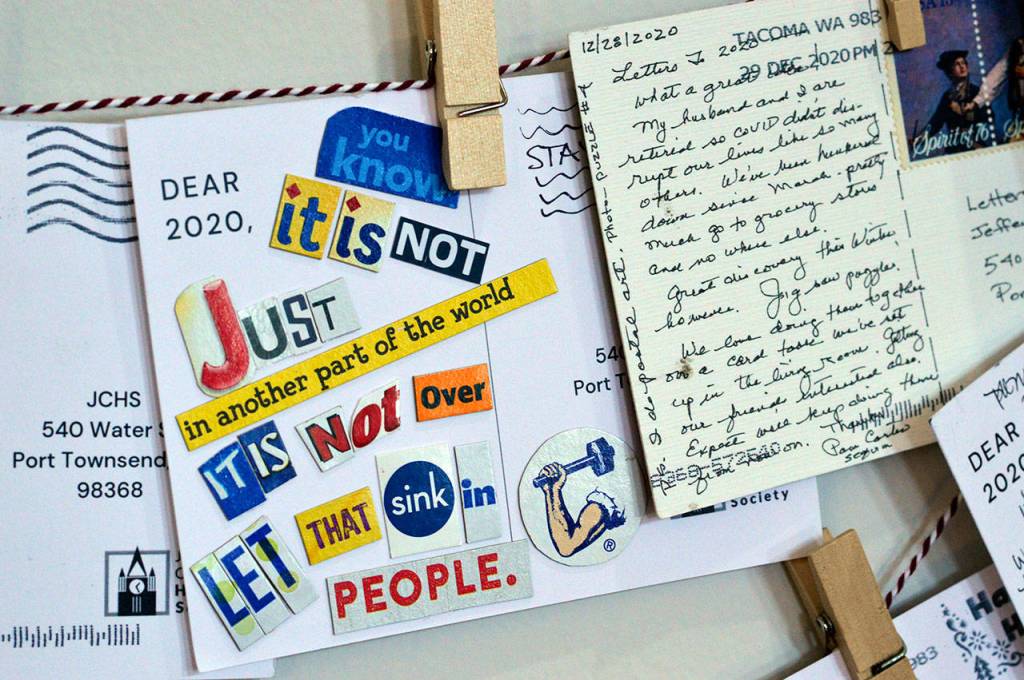 JCHS
540 Water S
Port Townsend,
98368
DEAR
2020,
you
know
it is NOT
JUST
in another part of the world
IT IS Not Over
LET THAT sink in
PEOPLE.
®
STA
540
Port T
Society
12/28/2020
TACOMA WA 983
29 DEC 2020 PM 2
Letters To 2020
What a great idea!
My husband and I are
retired so COVID didn't dis-
rupt our lives like so many
others. We've been hunkered
down since March - pretty
much go to grocery stores
and no where else.
Great discovery this Winter,
however. Jig saw puzzles.
We love doing them together
on a card table we've set
up in the living room. Getting
our friends interested also.
Expect we'll keep doing them
from now on.
Pam Carter
Sequim
I do postal art. Photo - Puzzle #4
Spirit of 76
Letter
Jeffe
540
Po
DEAR
2020
983
Ha
H